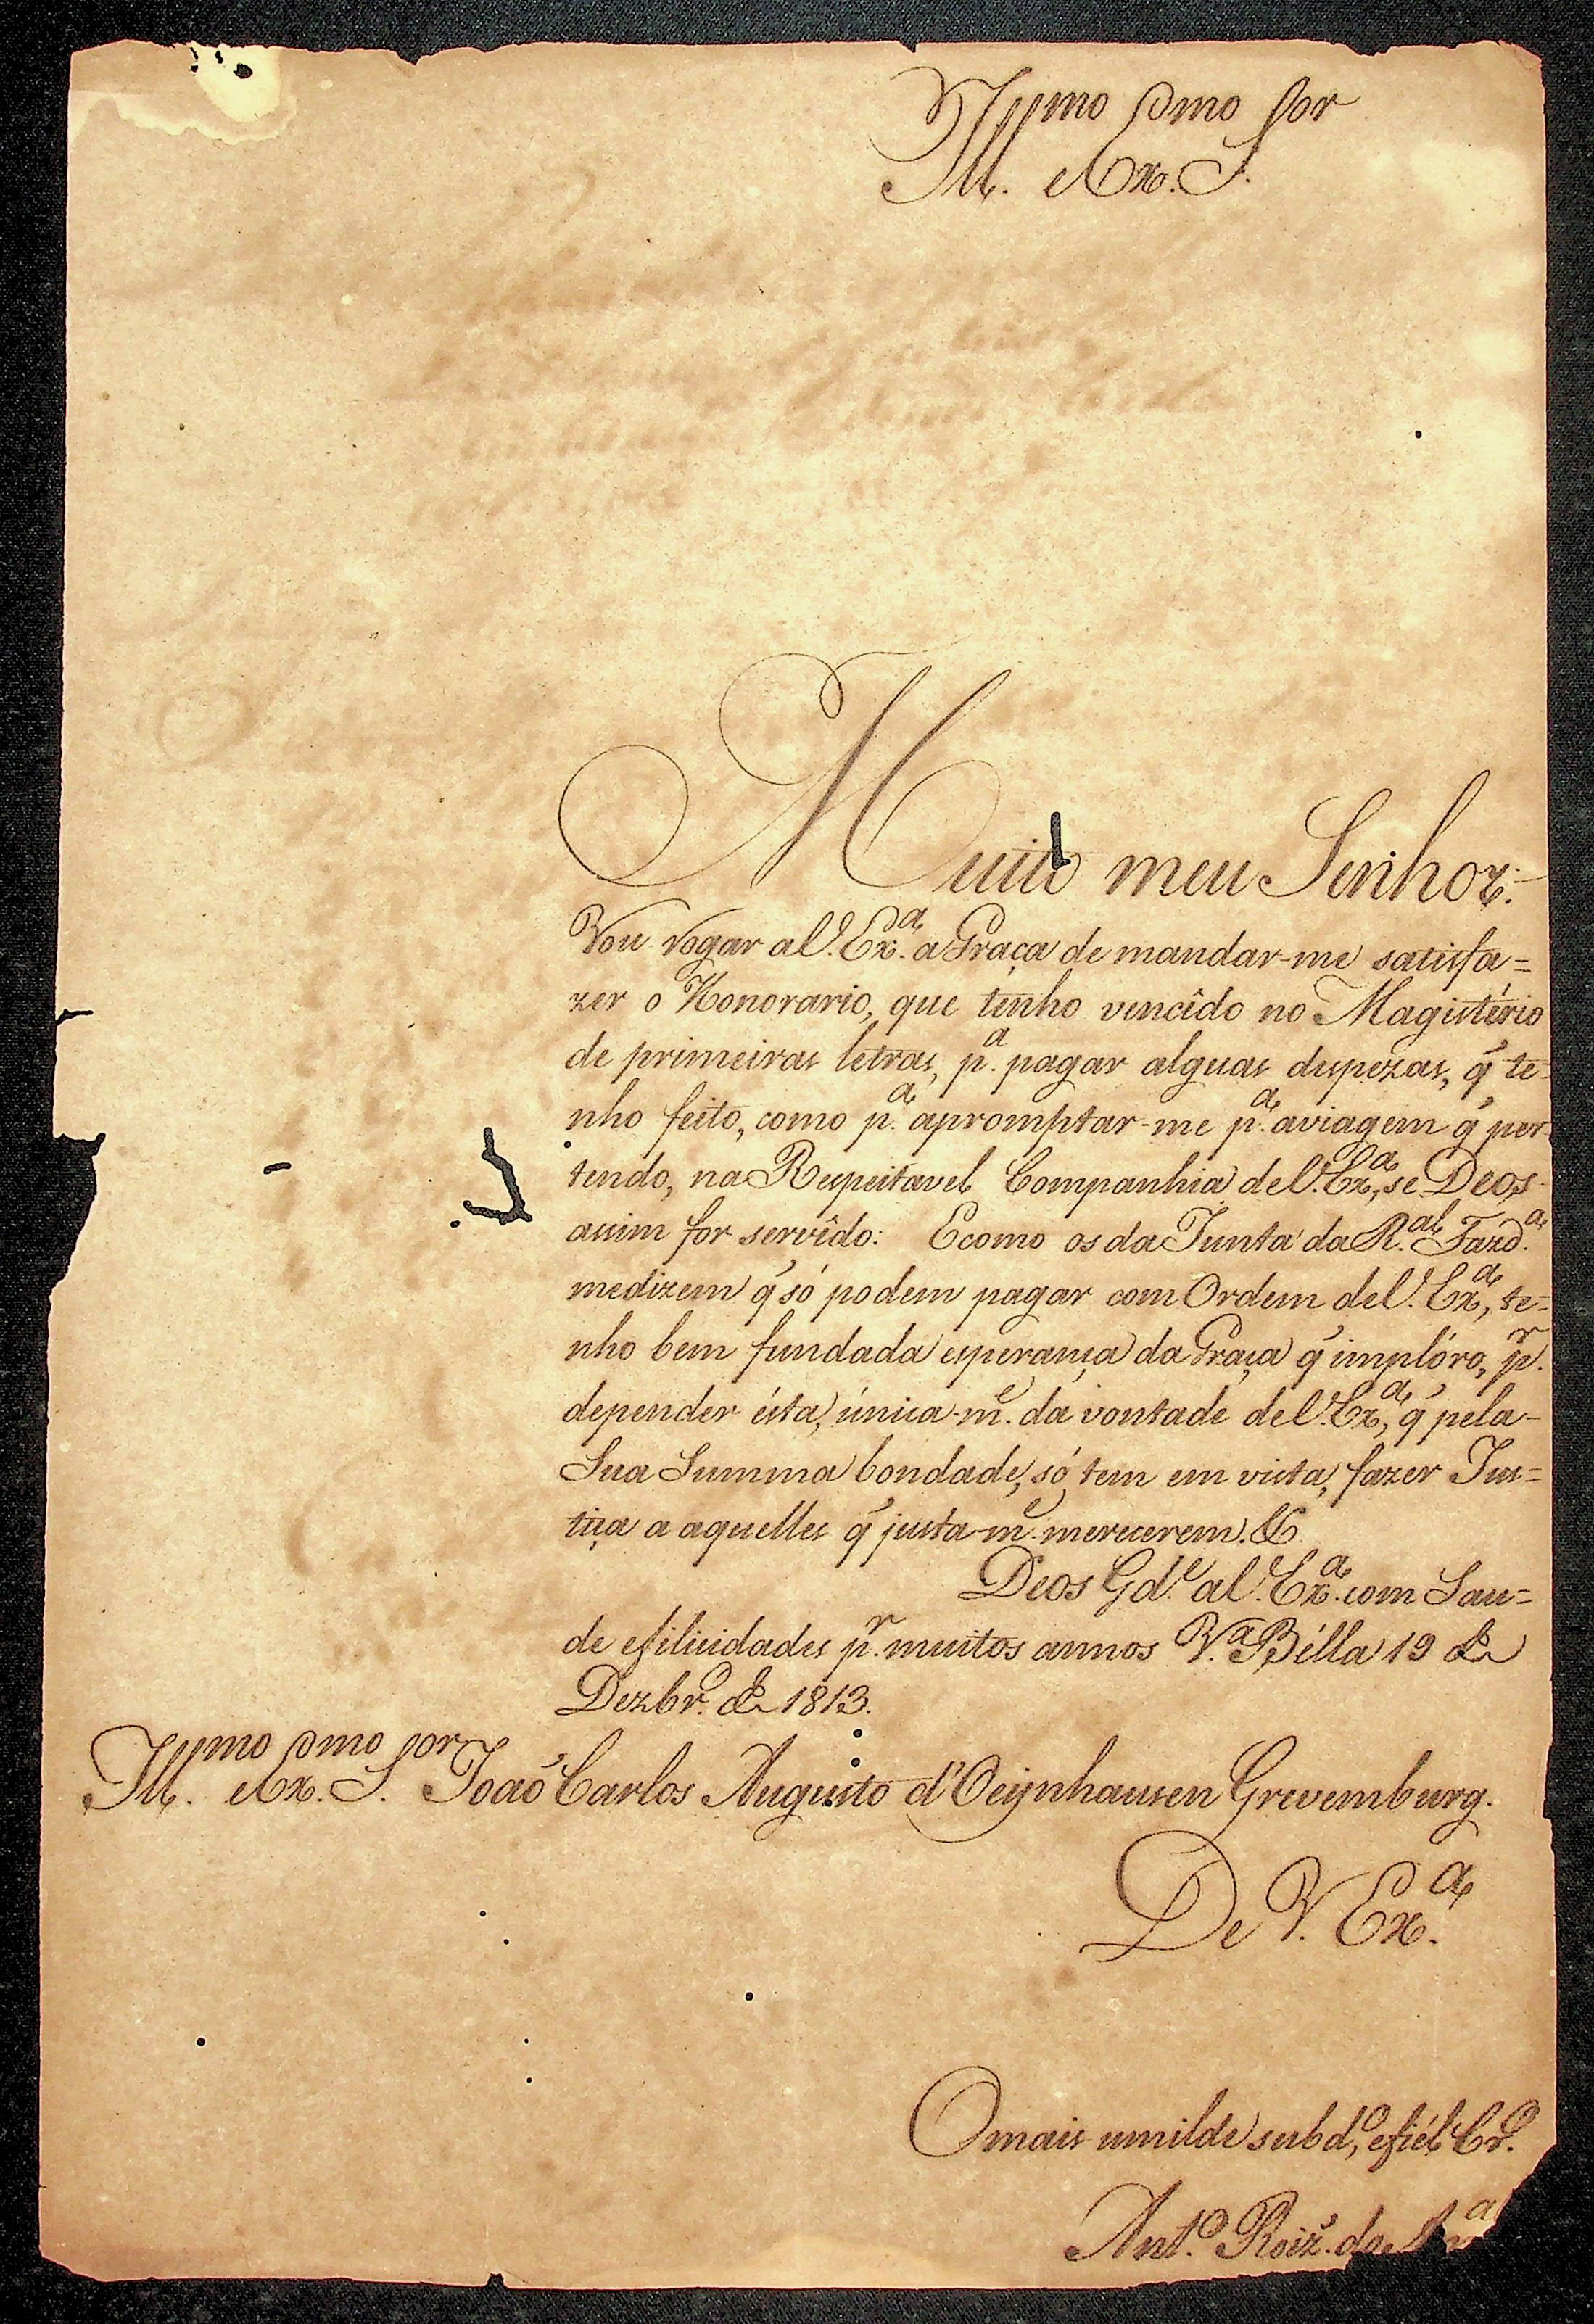 Ill.mo Ex.mo S.or
Muito meu Senhor:-
Vou rogar a V. Ex.a a Graça de mandar-me satisfa=
zer o Honorario, que tenho vencîdo no Magistério
de primeiras letras, p.a pagar alguas despezas, q̃ te-
nho feito, como p.a apromptar-me p.a aviagem q̃ per
tendo, na Respeitavel Companhia de V. Ex.a, se Deos
assim for servîdo: Ecomo os da Junta da R.al Fazd.a
medizem q̃ só podem pagar com Ordem de V. Ex.a, te=
nho bem fundada esperança da Graça q̃ implóro, p.r
depender ésta, única-m.e da vontade de V. Ex.a, q̃ pela-
Sua Summa bondade, só tem em vista, fazer Jus=
tiça a aquelles q̃ justa-m.e merecerem. &
Deos G.de a V. Ex.a com Sau=
de efilicidades p.r muitos annos V.a Bélla 19 de
Dezbr.o de 1813.
Ill.mo Ex.mo S.or João Carlos Augusto d'Oeijnhausen Grevemburg.
De V. Ex.a
Omais umilde subd.o, efiél Cr.o
Ant.o Roiz. da